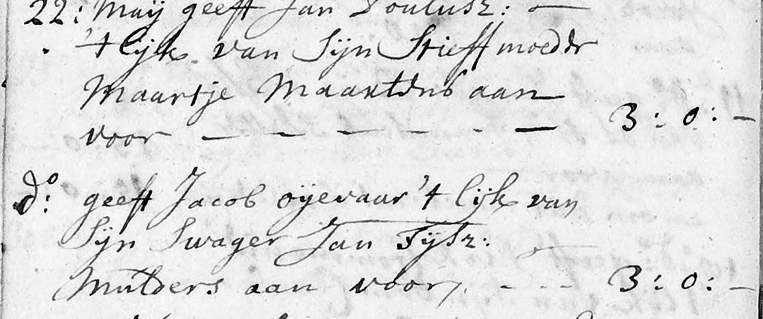 22: Maij geeft Jan Poulusz: —
't lijk van Sijn Stieffmoeder
Maartje Maartens aan
voor — — — — — — 3:0:—
do: geeft Jacob oijevaar 't lijk van
Sijn Swager Jan Tijsz:
Mulders aan voor, - - - 3:0:—